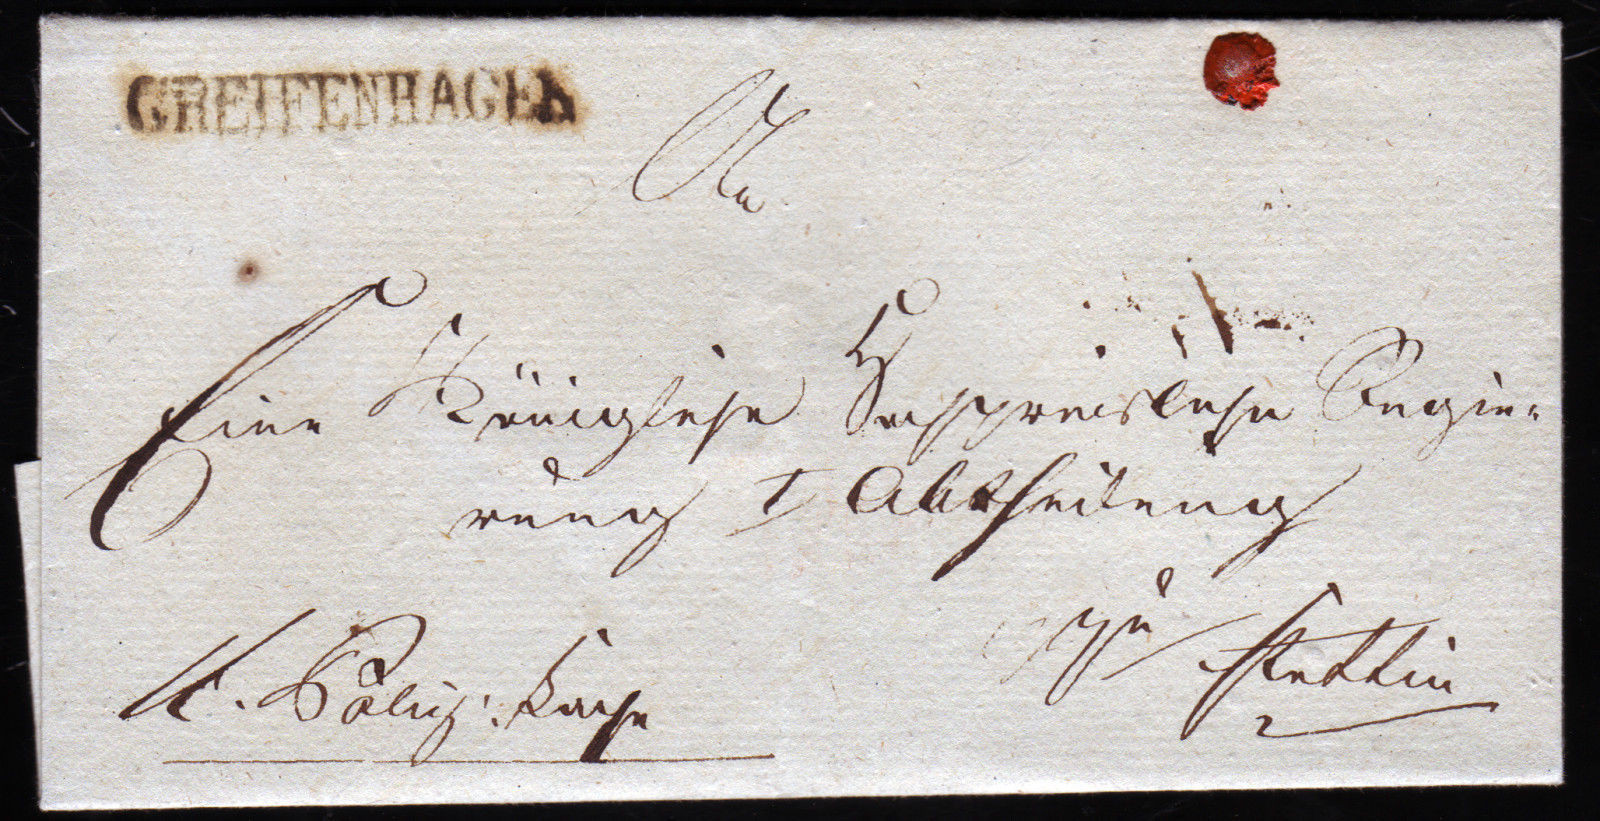 GREIFENHAGEN
An
Eine Königliche Hochpreisliche Regie-
rung I Abtheilung
zu Stettin
Poliz: Sache